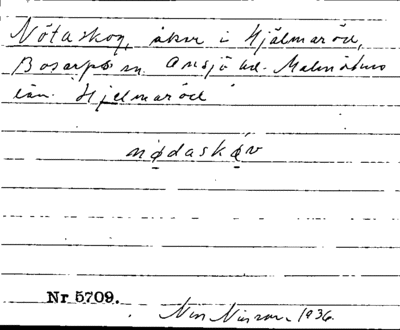 Nötaskog, åker i Hjälmaröd,
Bosarps sn. Onsjö hd. Malmöhus
län. "Hjelmaröd"
nǫdaskǫv
Nr 5709.
1936.